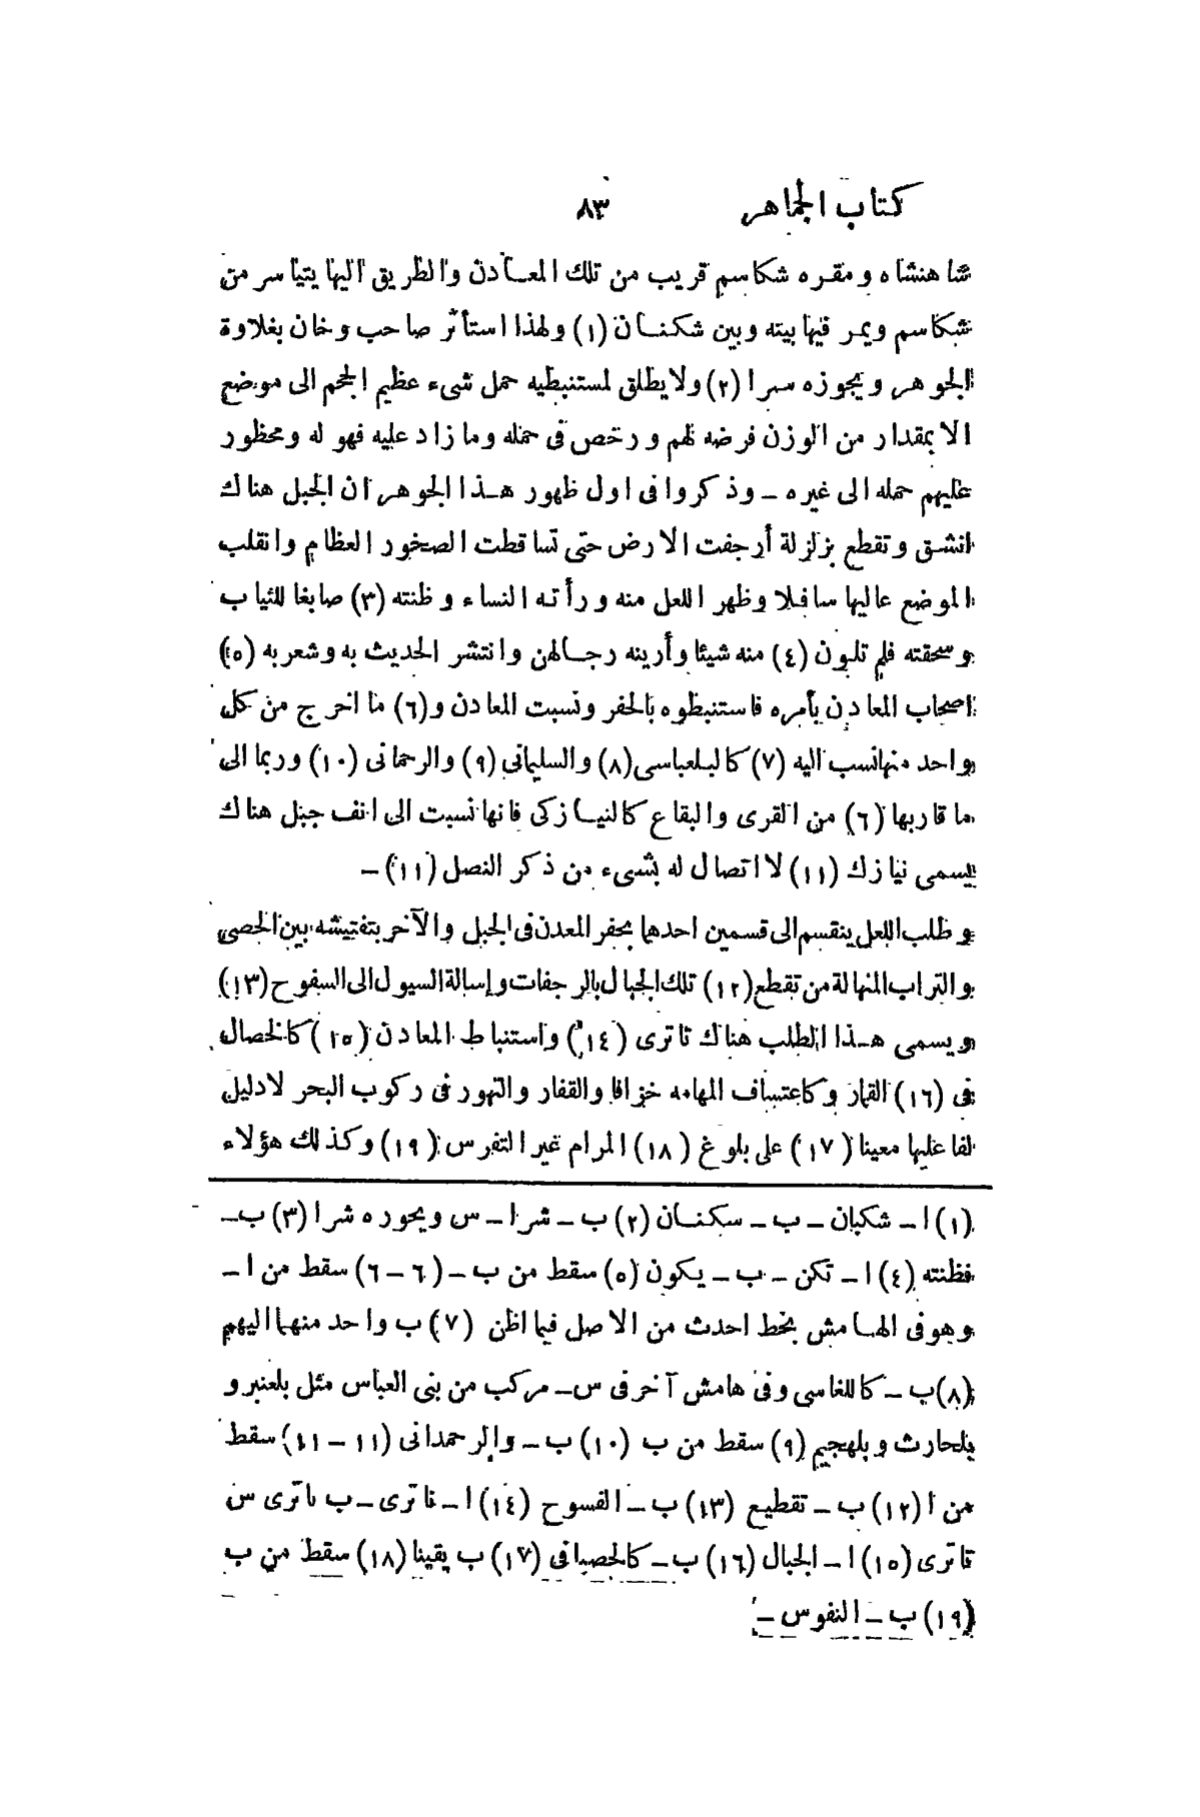 كتاب الجماهر ٨٣
شاهنشاه ومقره شكاسم قريب من تلك المعادن والطريق اليها يتياسر من
شكاسم ويمر فيها بيته وبين شكنان (١) ولهذا استأثر صاحب وخان بغلاوة
الجوهر ويجوزه سرا (٢) ولا يطلق لمستنبطيه حمل شىء عظيم الحجم الى موضع
الا بمقدار من الوزن فرضه لهم ورخص فى حمله وما زاد عليه فهو له ومحظور
عليهم حمله الى غيره ــ وذكروا فى اول ظهور هذا الجوهر ان الجبل هناك
انشق وتقطع بزلزلة أرجفت الارض حتى تساقطت الصخور العظام وانقلب
الموضع عاليها سافلا وظهر اللعل منه ورأته النساء وظنته (٣) صابغا للثياب
وسحقته فلم تلون (٤) منه شيئا وأرينه رجالهن وانتشر الحديث به وشعر به (٥)
اصحاب المعادن بأمره فاستنبطوه بالحفر ونسبت المعادن و(٦) ما اخرج من كل
واحد منها نسب اليه (٧) كالبلعباسى (٨) والسليمانى (٩) والرحمانى (١٠) وربما الى
ما قاربها (٦) من القرى والبقاع كالنيازكى فانها نسبت الى انف جبل هناك
يسمى نيازك (١١) لا اتصال له بشىء من ذكر النصل (١١) ــ
وطلب اللعل ينقسم الى قسمين احدهما بحفر المعدن فى الجبل والآخر بتفتيشه بين الحصى
والتراب المنهالة من تقطع (١٢) تلك الجبال بالرجفات وإسالة السيول الى السفوح (١٣)
ويسمى هذا الطلب هناك تاترى (١٤) واستنباط المعادن (١٥) كالخصال
فى (١٦) القمار وكاعتساف المهامه خزافا والقفار والتهور فى ركوب البحر لا دليل
لفاعليها معينا (١٧) على بلوغ (١٨) المرام غير التفرس (١٩) وكذلك هؤلاء
(١) ا ــ شكيان ــ ب ــ سكنان (٢) ب ــ شرا ــ س ويحوره شرا (٣) ب ــ
فظنته (٤) ا ــ تكن ــ ب ــ يكون (٥) سقط من ب ــ (٦ ــ ٦) سقط من ا ــ
وهو فى الهامش بخط احدث من الاصل فيما اظن (٧) ب واحد منهما اليهم
(٨) ب ــ كاللغاسى وفى هامش آخر فى س ــ مركب من بنى العباس مثل بلعنبر و
بلحارث وبلهجيم (٩) سقط من ب (١٠) ب ــ والرحمدانى (١١ ــ ١١) سقط
من ا (١٢) ب ــ تقطيع (١٣) ب ــ الفسوح (١٤) ا ــ تاترى ــ ب باترى س
تاترى (١٥) ا ــ الجبال (١٦) ب ــ كالحصبا فى (١٧) ب يقينا (١٨) سقط من ب
(١٩) ب ــ النفوس ــ